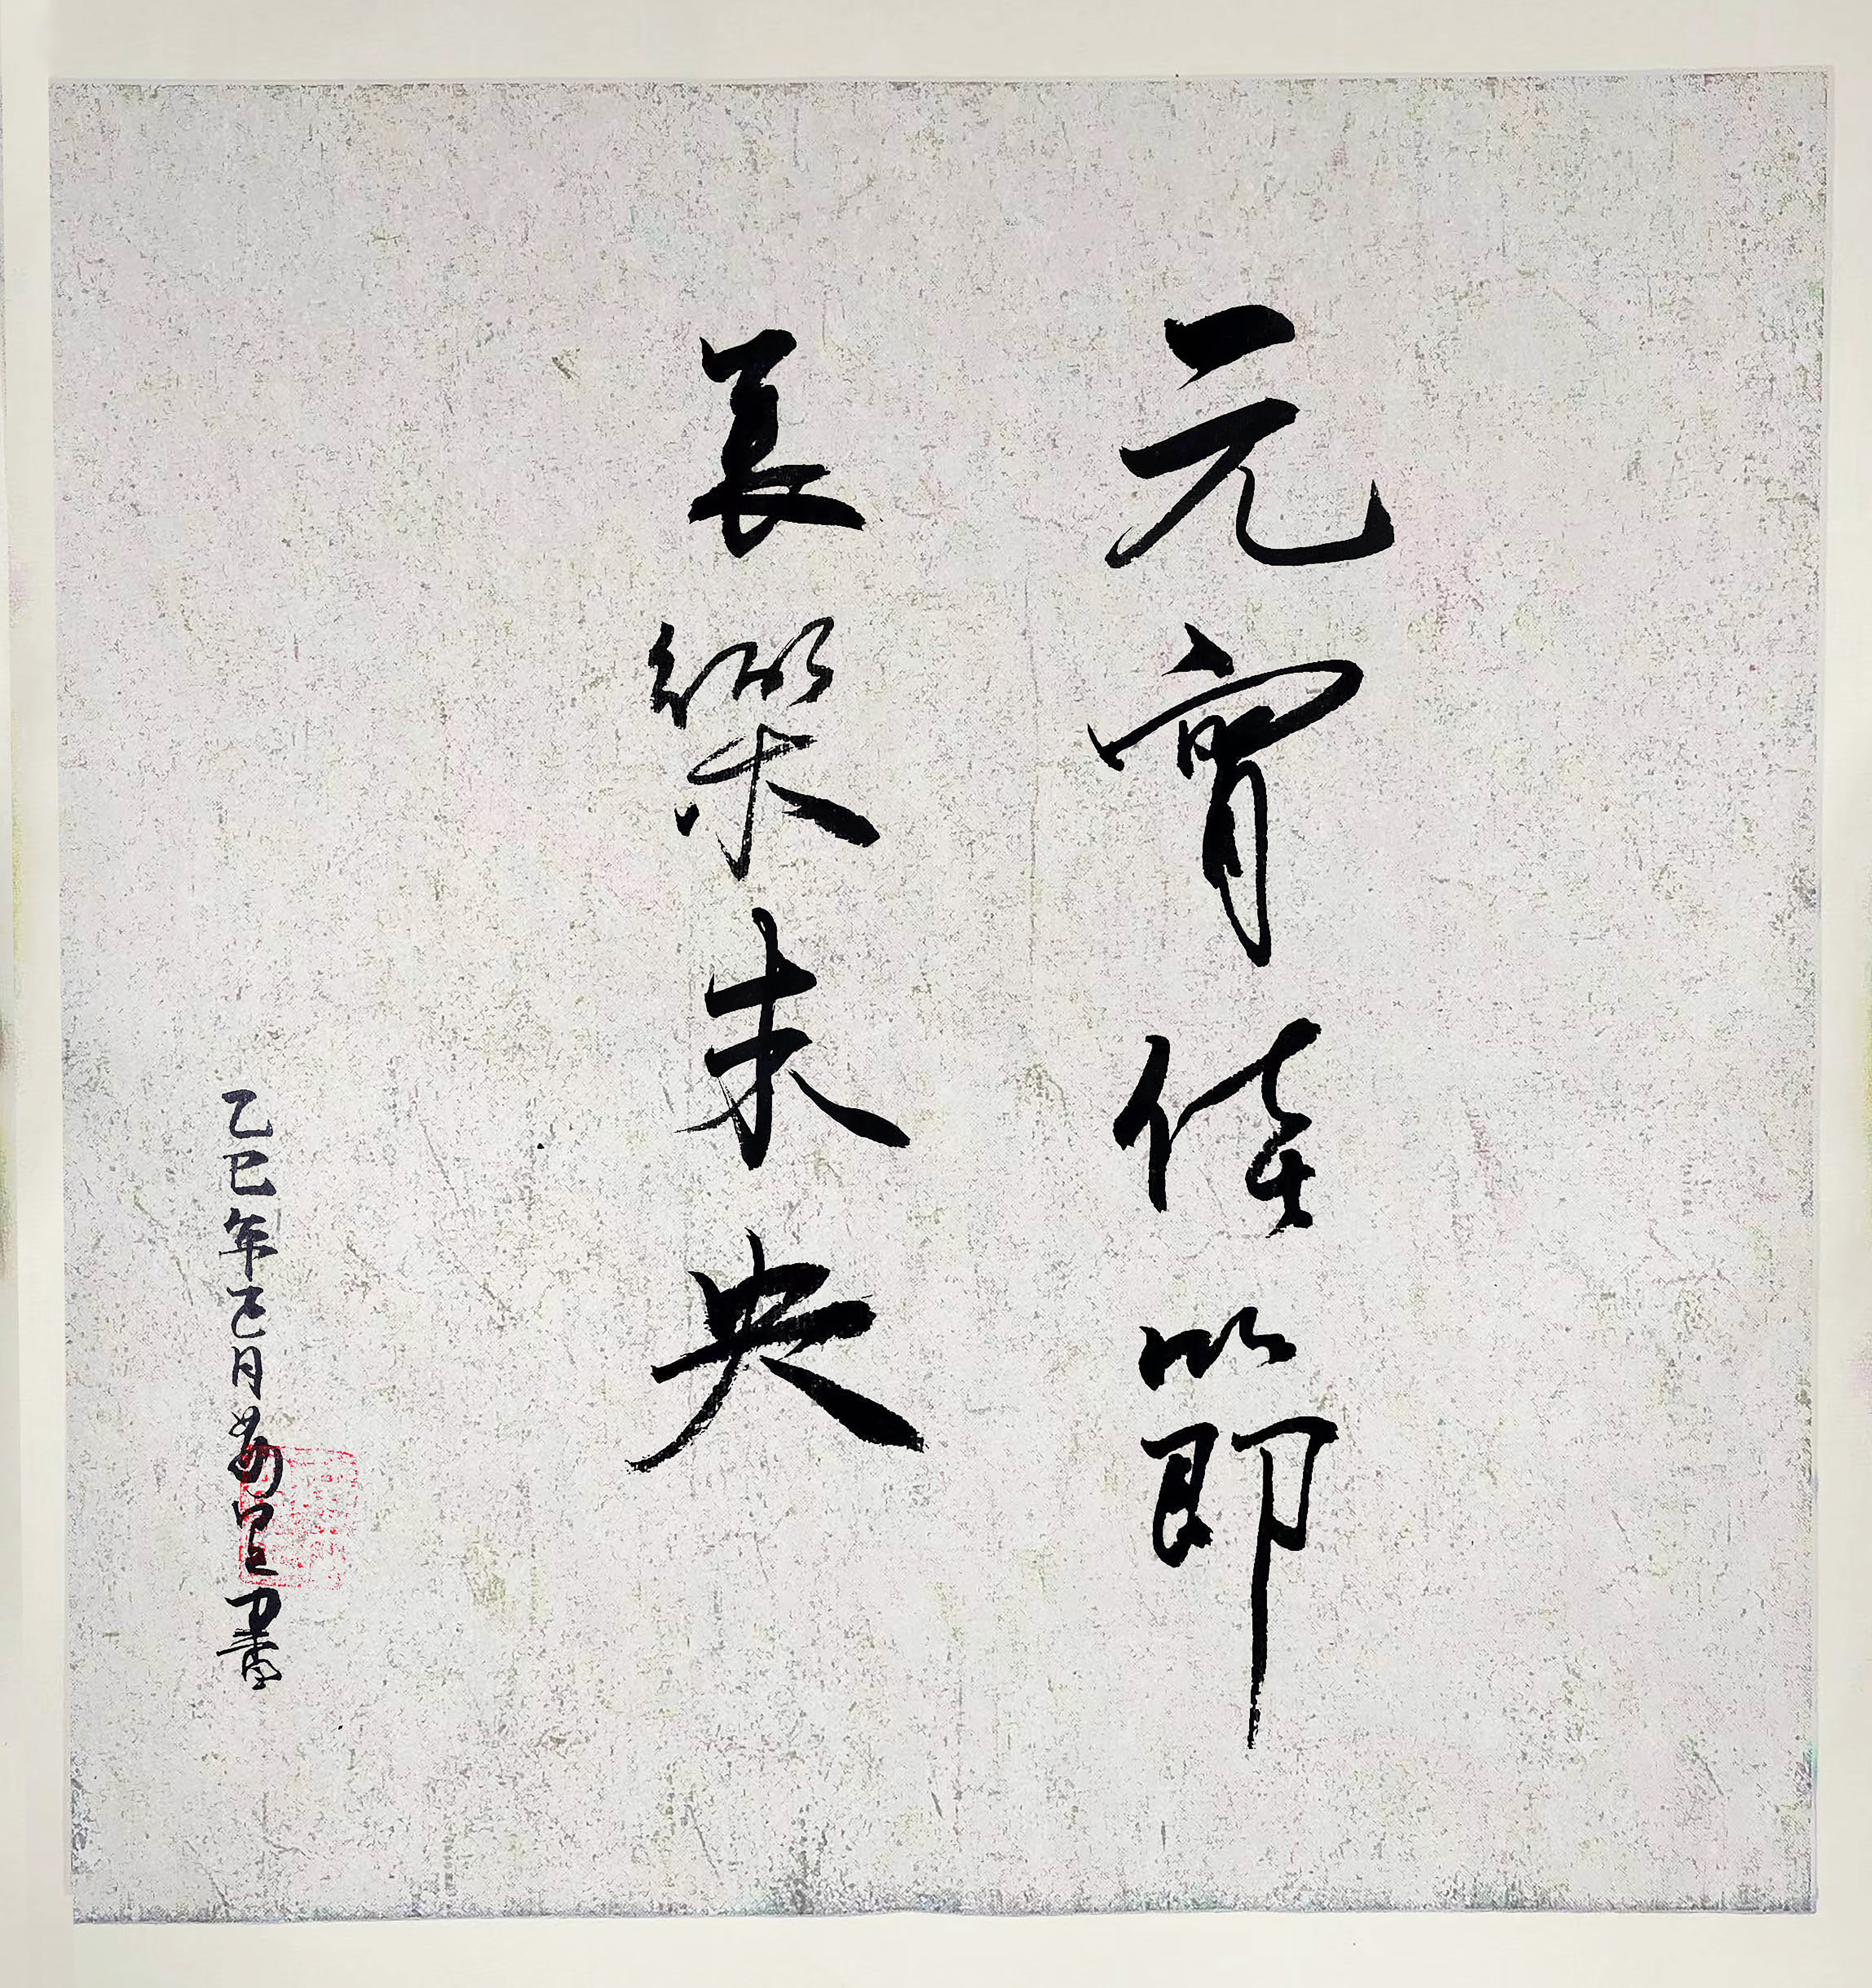 元宵佳節
長樂未央
乙巳年正月
書